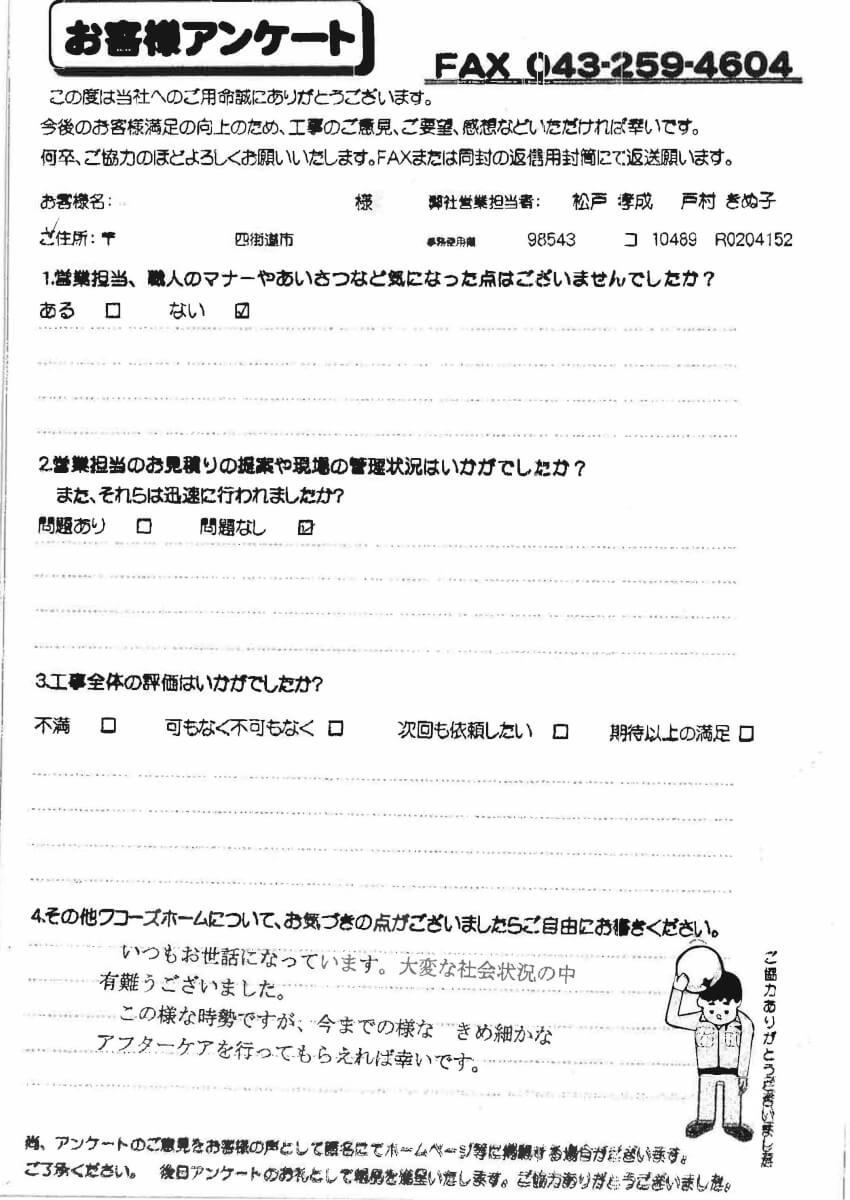 お客様アンケート
FAX 043-259-4604
この度は当社へのご用命誠にありがとうございます。
今後のお客様満足の向上のため、工事のご意見、ご要望、感想などいただければ幸いです。
何卒、ご協力のほどよろしくお願いいたします。FAXまたは同封の返信用封筒にて返送願います。
お客様名: 様 弊社営業担当者: 松戸 孝成 戸村 きぬ子
ご住所:〒 四街道市 事務使用欄 98543 コ 10489 R0204152
1.営業担当、職人のマナーやあいさつなど気になった点はございませんでしたか?
ある □ ない ☑
2.営業担当のお見積りの提案や現場の管理状況はいかがでしたか?
また、それらは迅速に行われましたか?
問題あり □ 問題なし ☑
3.工事全体の評価はいかがでしたか?
不満 □ 可もなく不可もなく □ 次回も依頼したい □ 期待以上の満足 □
4.その他ワコーズホームについて、お気づきの点がございましたらご自由にお書きください。
いつもお世話になっています。大変な社会状況の中
有難うございました。
この様な時勢ですが、今までの様な きめ細かな
アフターケアを行ってもらえれば幸いです。
ご協力ありがとうございました
尚、アンケートのご意見をお客様の声として匿名にてホームページ等に掲載する場合がございます。
ご了承ください。 後日アンケートのお礼として粗品を進呈いたします。ご協力ありがとうございました。